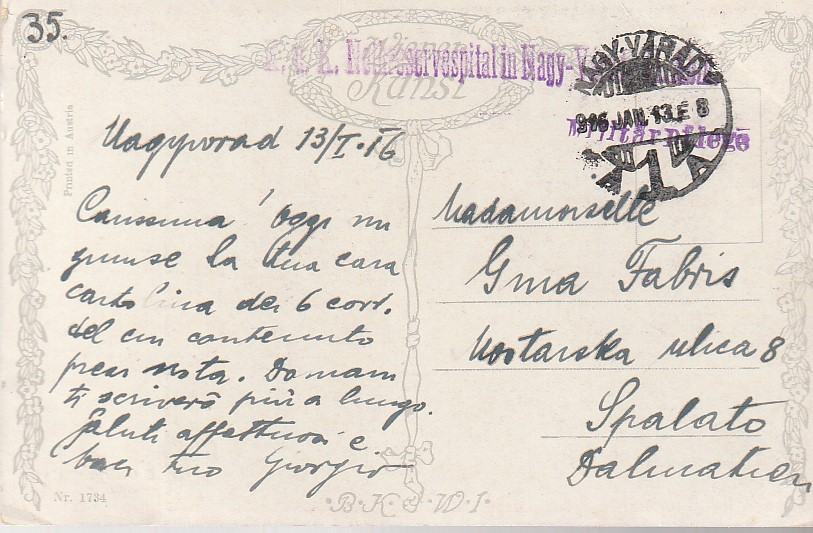 35.
Wiener Kunst
k. u. k. Reservespital in Nagy-V
NAGY-VÁRAD
916 JAN. 13. E 8
Militärpflege
1
A A
Printed in Austria
Nagyvorad 13/I. 16
Carissima! Oggi mi
giunse la tua cara
cartolina dei 6 corr.
del cui contenuto
presi nota. Domani
ti scriverò più a lungo.
Saluti affettuosi e
baci tuo Giorgio
Madamoiselle
Gina Fabris
Mostarska ulica 8
Spalato
Dalmatien
Nr. 1734
·B·K·W·I·